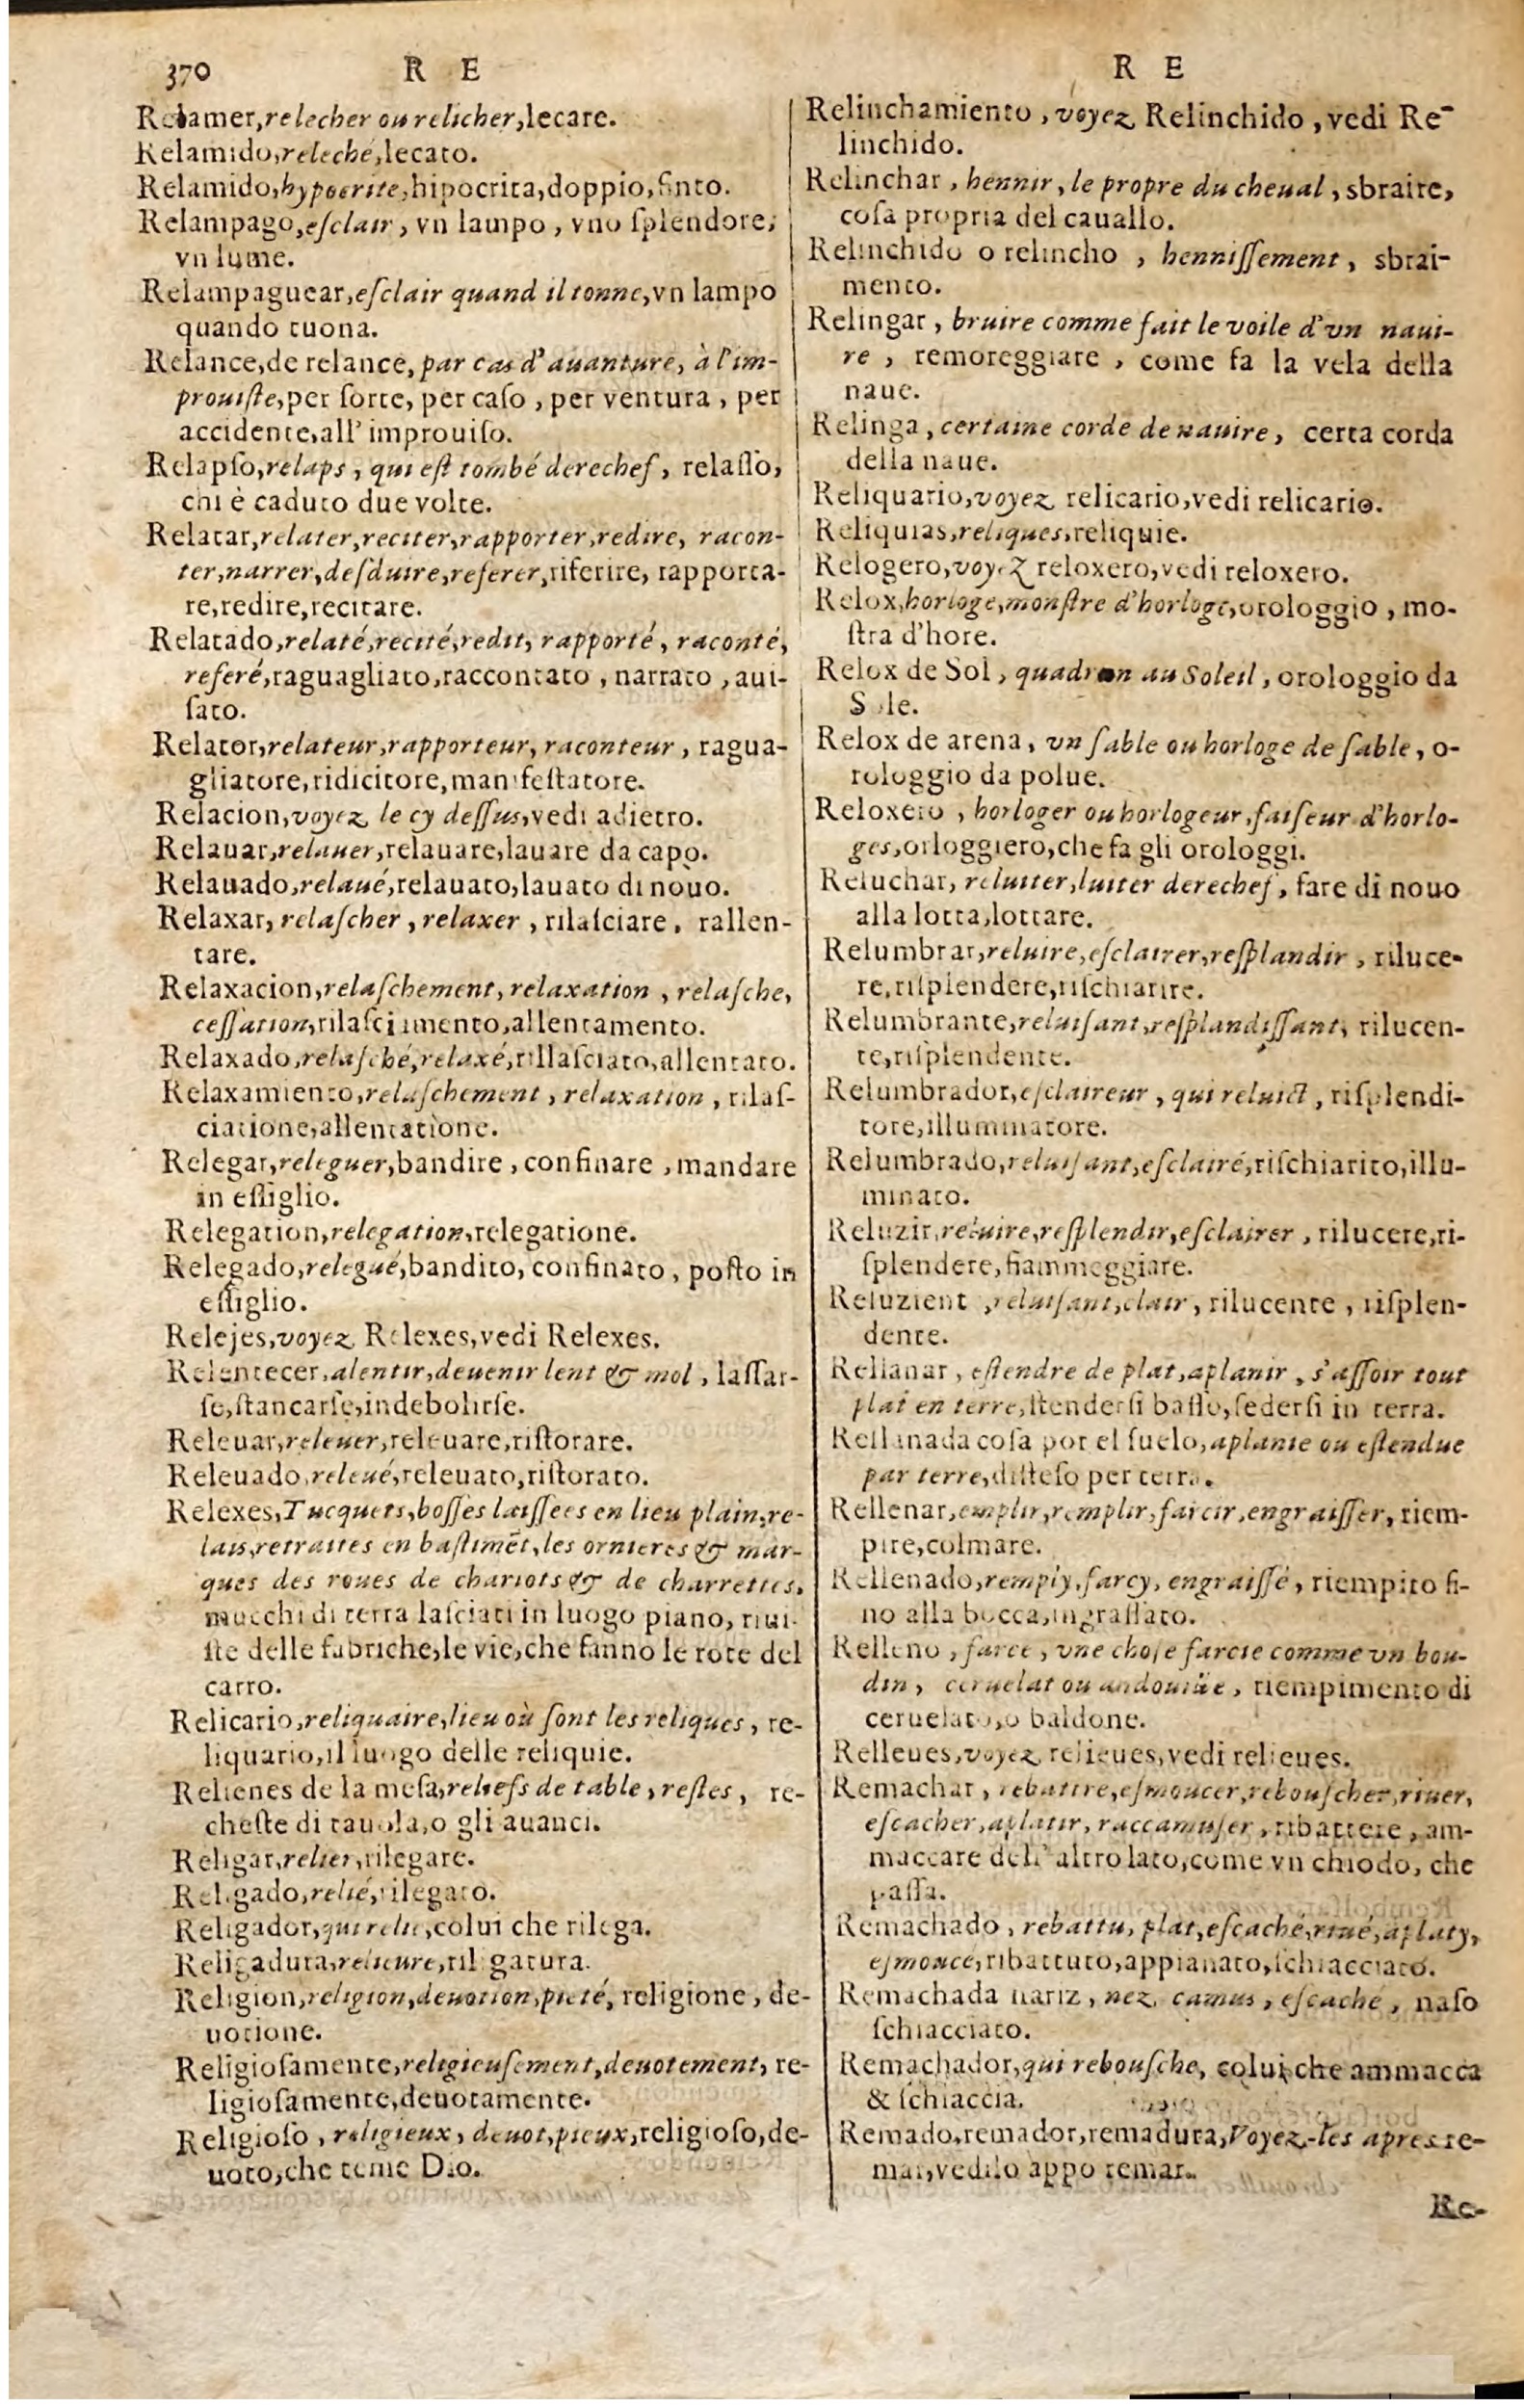 370 R E
Relamer,relecher ou relicher,lecare.
Relamido,releché,lecato.
Relamido,hypocrite,hipocrita,doppio,finto.
Relampago,eſclair, vn lampo, vno ſplendore,
vn lume.
Relampaguear,eſclair quand il tonne,vn lampo
quando tuona.
Relance,de relance,par cas d'auanture, à l'im-
prouiſte,per ſorte, per caſo, per ventura, per
accidente,all' improuiſo.
Relapſo,relaps, qui eſt tombé derechef, relaſſo,
chi è caduto due volte.
Relatar,relater,reciter,rapporter,redire, racon-
ter,narrer,deſduire,referer,riferire, rapporta-
re,redire,recitare.
Relatado,relaté,recité,redit, rapporté, raconté,
referé,raguagliato,raccontato, narrato, aui-
ſato.
Relator,relateur,rapporteur, raconteur, ragua-
gliatore,ridicitore,manifeſtatore.
Relacion,voyez le cy deſſus,vedi adietro.
Relauar,relauer,relauare,lauare da capo.
Relauado,relaué,relauato,lauato di nouo.
Relaxar, relaſcher, relaxer, rilaſciare, rallen-
tare.
Relaxacion,relaſchement, relaxation, relaſche,
ceſſation,rilaſciamento,allentamento.
Relaxado,relaſché,relaxé,rillaſciato,allentato.
Relaxamiento,relaſchement, relaxation, rilaſ-
ciatione,allentatione.
Relegar,releguer,bandire, confinare, mandare
in eſſiglio.
Relegation,relegation,relegatione.
Relegado,relegué,bandito, confinato, poſto in
eſſiglio.
Relejes,voyez Relexes,vedi Relexes.
Relentecer,alentir,deuenir lent & mol, laſſar-
ſe,ſtancarſe,indebolirſe.
Releuar,releuer,releuare,riſtorare.
Releuado,releué,releuato,riſtorato.
Relexes,Tucquets,boſſes laiſſees en lieu plain,re-
lais,retraites en baſtimēt,les ornieres & mar-
ques des roues de chariots & de charrettes,
mucchi di terra laſciati in luogo piano, riui-
ſte delle fabriche,le vie,che fanno le rote del
carro.
Relicario,reliquaire,lieu où ſont les reliques, re-
liquario,il luogo delle reliquie.
Relienes de la meſa,reliefs de table, reſtes, re-
cheſte di tauola,o gli auanci.
Religar,relier,rilegare.
Religado,relié,rilegato.
Religador,qui relie,colui che rilega.
Religadura,relieure,riligatura.
Religion,religion,deuotion,pieté, religione, de-
uotione.
Religioſamente,religieuſement,deuotement, re-
ligioſamente,deuotamente.
Religioſo, religieux, deuot,pieux,religioſo,de-
uoto,che teme Dio.
R E
Relinchamiento, voyez Relinchido, vedi Re-
linchido.
Relinchar, hennir, le propre du cheual, sbraire,
coſa propria del cauallo.
Relinchido o relincho, henniſſement, sbrai-
mento.
Relingar, bruire comme fait le voile d'vn naui-
re, remoreggiare, come fa la vela della
naue.
Relinga, certaine corde de nauire, certa corda
della naue.
Reliquario,voyez relicario,vedi relicario.
Reliquias,reliques,reliquie.
Relogero,voyez reloxero,vedi reloxero.
Relox,horloge,monſtre d'horloge,orologgio, mo-
ſtra d'hore.
Relox de Sol, quadran au Soleil, orologgio da
Sole.
Relox de arena, vn ſable ou horloge de ſable, o-
rologgio da polue.
Reloxero, horloger ou horlogeur,faiſeur d'horlo-
ges,orloggiero,che fa gli orologgi.
Reluchar, reluitter,luiter derechef, fare di nouo
alla lotta,lottare.
Relumbrar,reluire,eſclairer,reſplandir, riluce-
re,riſplendere,riſchiarire.
Relumbrante,reluiſant,reſplandiſſant, rilucen-
te,riſplendente.
Relumbrador,eſclaireur, qui reluict, riſplendi-
tore,illuminatore.
Relumbrado,reluiſant,eſclairé,riſchiarito,illu-
minato.
Reluzir,reluire,reſplendir,eſclairer, rilucere,ri-
ſplendere,fiammeggiare.
Reluzient,reluiſant,clair, rilucente, riſplen-
dente.
Rellanar, eſtendre de plat,aplanir, s'aſſoir tout
plat en terre,ſtenderſi baſſo,ſederſi in terra.
Rellanada coſa por el ſuelo,aplanie ou eſtendue
par terre,diſteſo per terra.
Rellenar,emplir,remplir,farcir,engraiſſer, riem-
pire,colmare.
Rellenado,remply,farcy, engraiſſé, riempito fi-
no alla bocca,ingraſſato.
Relleno, farce, vne choſe farcie comme vn bou-
din, ceruelat ou andouille, riempimento di
ceruelato,o baldone.
Relleues,voyez relieues,vedi relieues.
Remachar, rebattre,eſmoucer,rebouſcher,riuer,
eſcacher,aplatir, raccamuſer, ribattere, am-
maccare dell' altro lato,come vn chiodo, che
paſſa.
Remachado, rebattu, plat,eſcaché,riué,aplaty,
eſmoucé,ribattuto,appianato,ſchiacciato.
Remachada nariz, nez camus, eſcaché, naſo
ſchiacciato.
Remachador,qui rebouſche, colui,che ammacca
& ſchiaccia.
Remado,remador,remadura,Voyez-les apres re-
mar,vedilo appo remar.
Re-